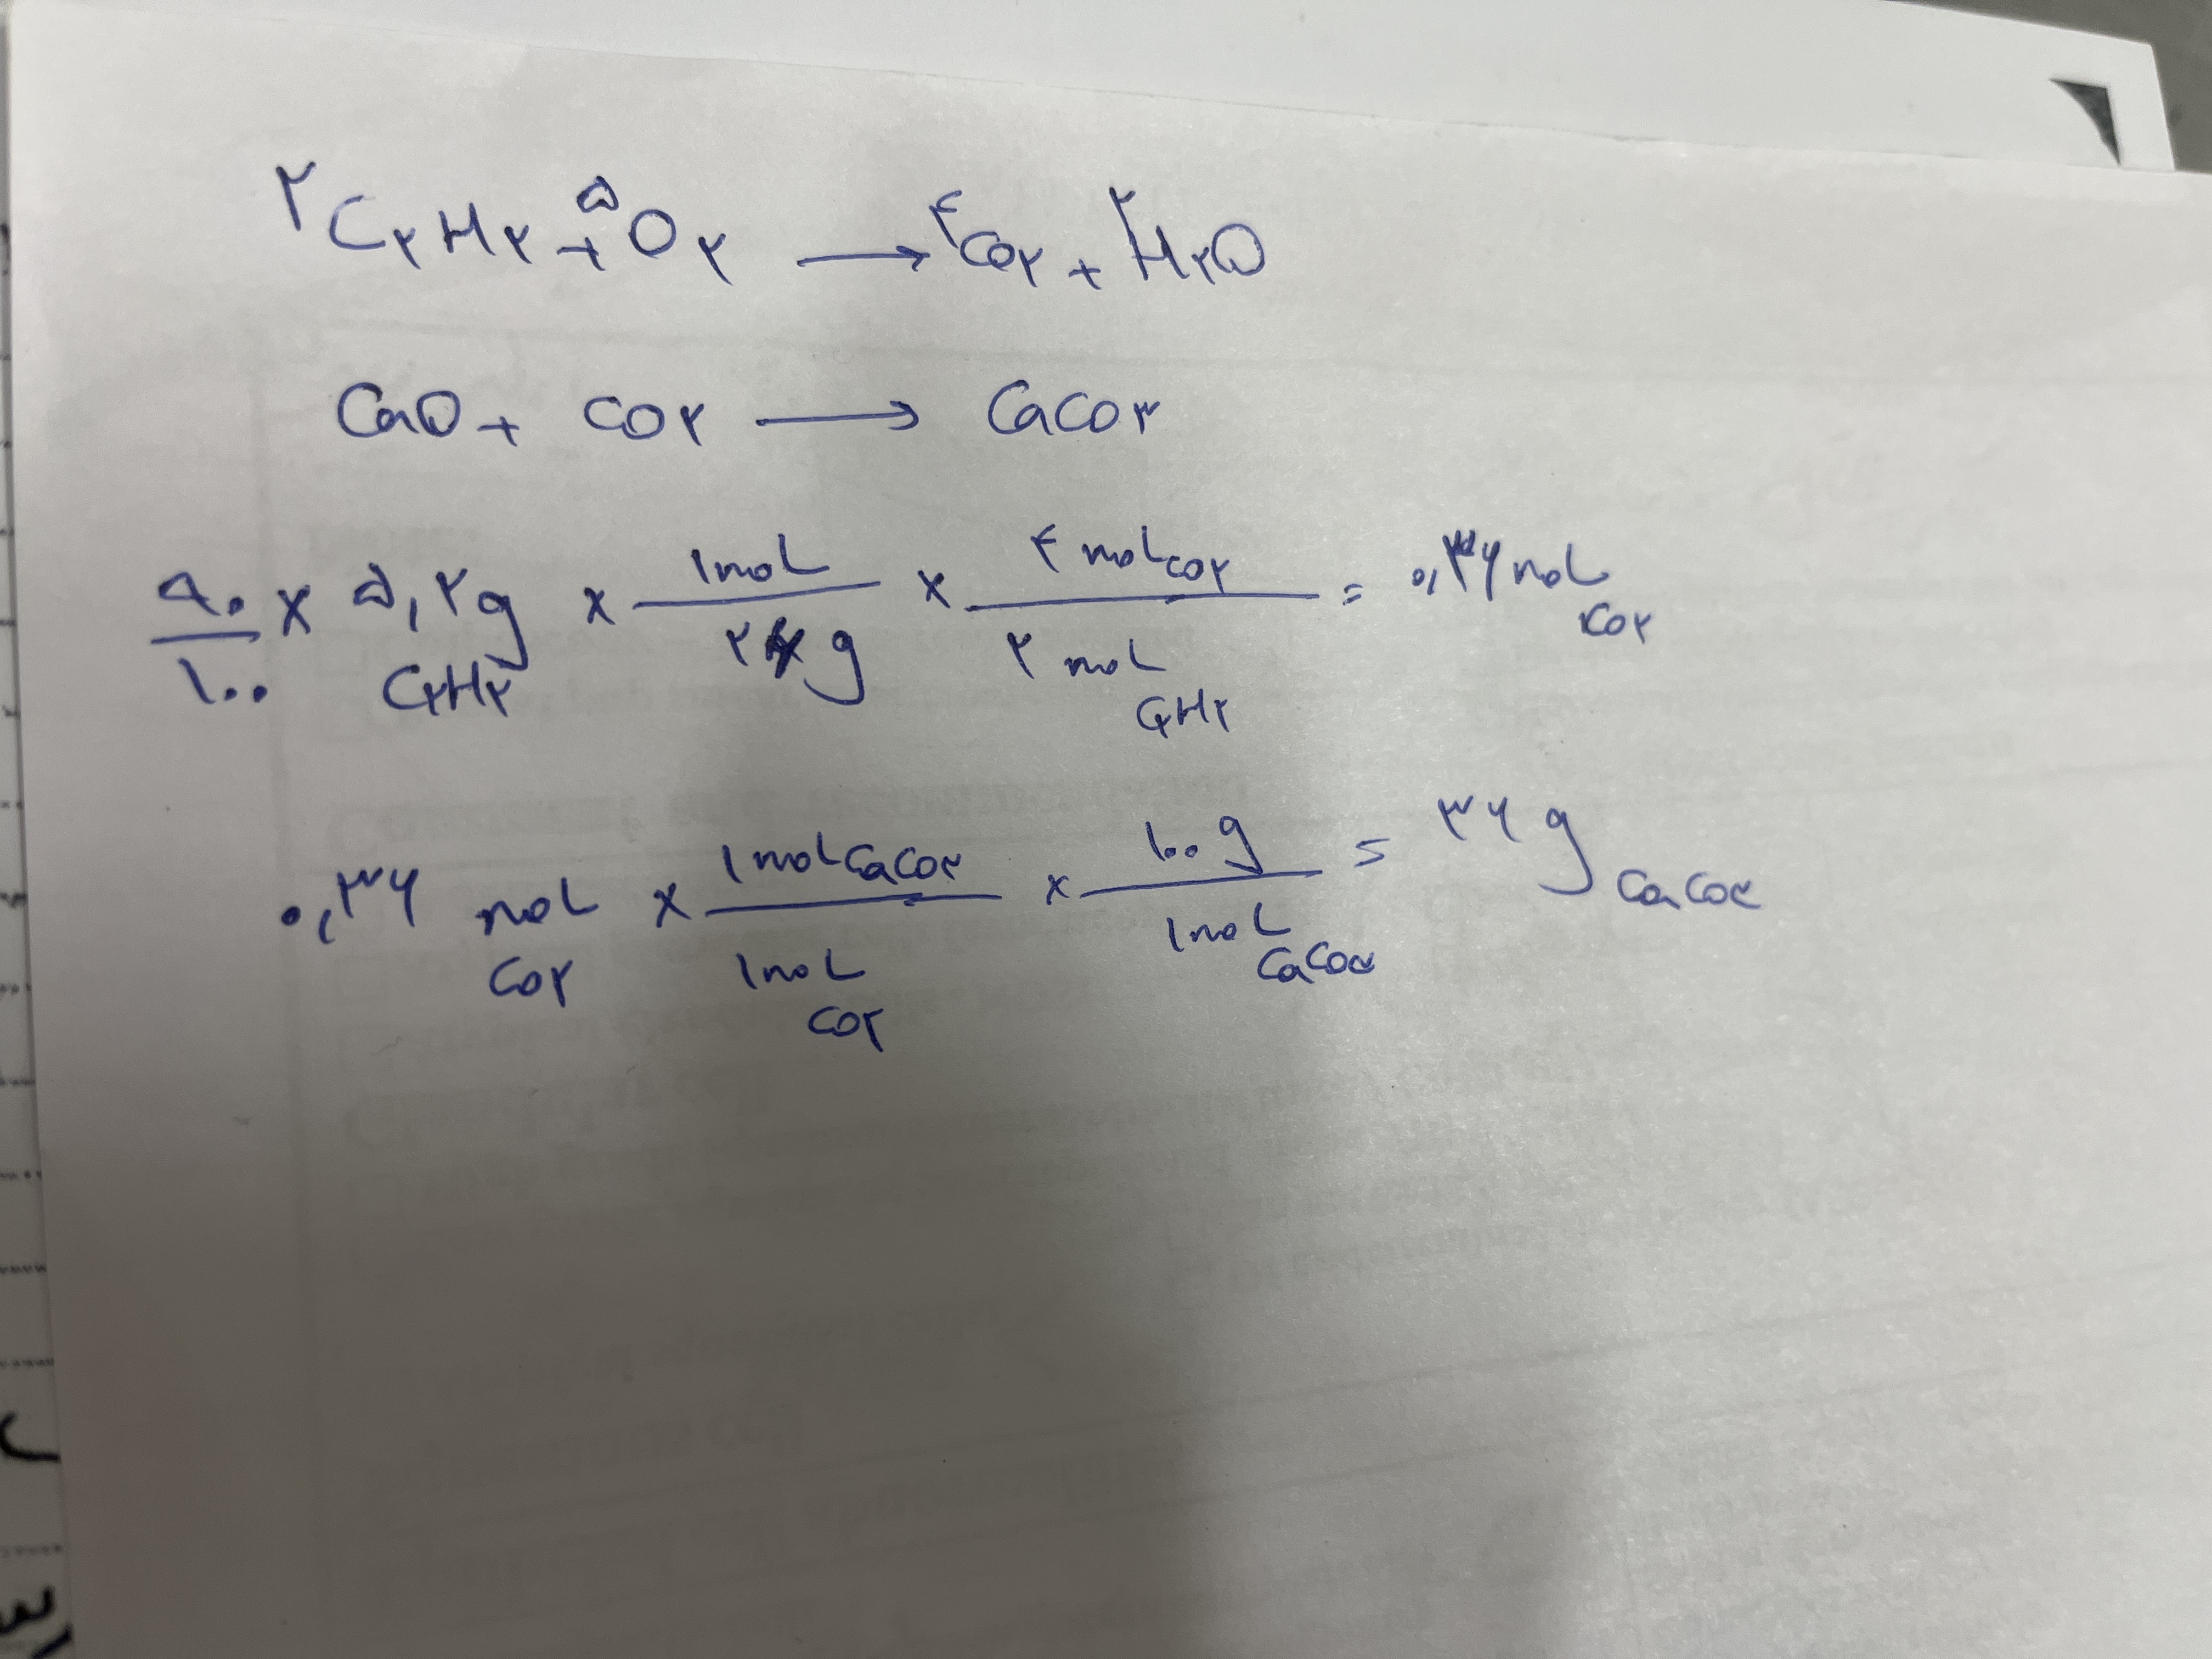 ۲C۲H۲ + ۵O۲ → ۴CO۲ + ۲H۲O
CaO + CO۲ → CaCO۳
۹۰/۱۰۰ × ۵,۲g C۲H۲ × ۱mol/۲۶g × ۴mol CO۲/۲mol C۲H۲ = ۰,۳۶mol CO۲
۰,۳۶ mol CO۲ × ۱mol CaCO۳/۱mol CO۲ × ۱۰۰g/۱mol CaCO۳ = ۳۶g CaCO۳